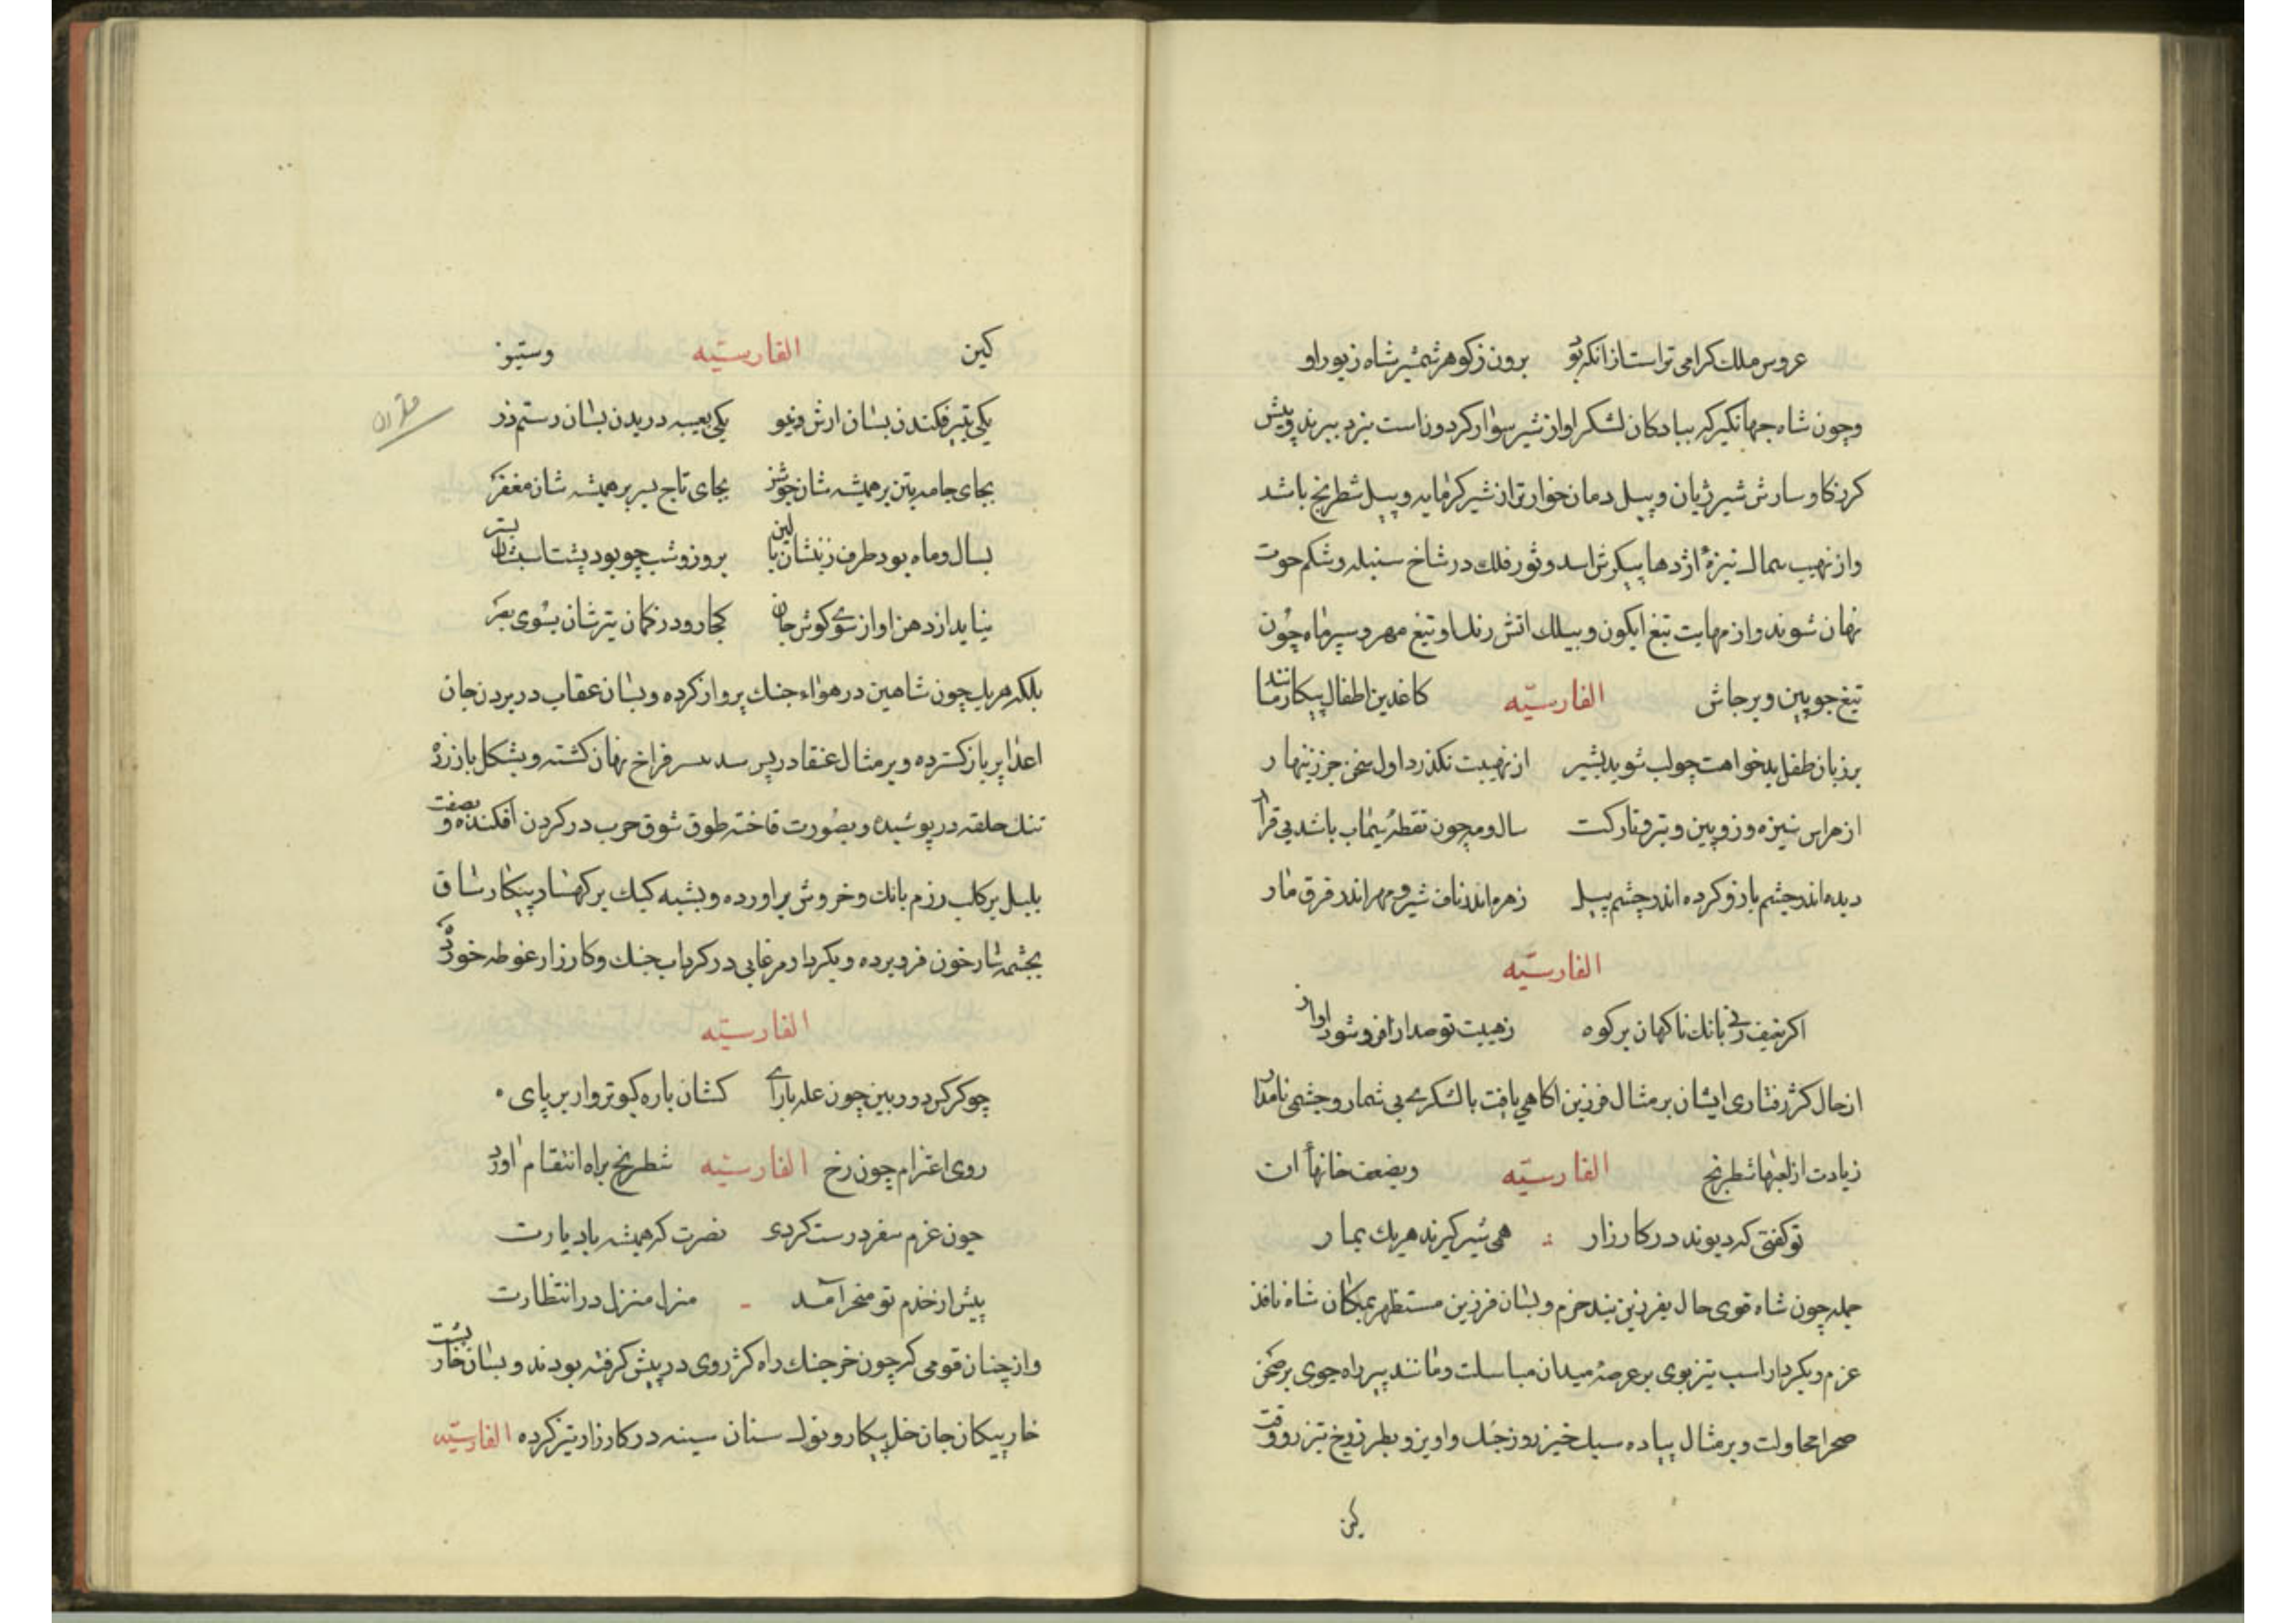 عروس ملك كرامی تراست از انكه بود برون ز كوهر شمشیر شاه زیور او
وچون شاه جهانكیر كه بیادكان لشكر او از شیر سوار كردون است نبرد ببرند وپیش
كرز كاو سارش شیر ژیان و پیل دمان خوارتر از شیر كرمابه و پیل شطرنج باشد
واز نهیب سمال نیزهٔ اژدها پیكرش اسد و ثور فلك در شاخ سنبله و شكم حوت
نهان شوند واز مهابت تیغ ابكون و بیلك اتش رنك او تیغ مهر و سپر ماه چون
تیغ چوبین و پرجاش الفارسیّه كاغذین اطفال پیكار مانند
بر زبان طفل بدخواهت چو لب شوید بشیر از نهیبت نكذرد اول سخن جز زینهار
از هراس نیزه و زوبین و تیر و تار كت سال ومه چون نقطهٔ سیماب باشد بی قرار
دیده اندر چشم باز و كرده اندر چشم پیل زهره اندر ناف شیر و مهر اندر فرق مار
الفارسیّه
اكر نهیف زنی بانك ناكهان بر كوه ز هیبت تو صدا را فرو شود اواز
از حال كژ رفتاری ایشان بر مثال فرزین اكاهی یافت با لشكری بی شمار و جشمی نامدار
زیادت از لعبها شطرنج الفارسیّه وبضعف خانهاء ان
تو كفتی كه دیوند در كارزار همی شیر كیرند هر یك بمار
جمله چون شاه قوی حال بفرزین بند حزم و بسان فرزین مستظهر بمكان شاه نافذ
عزم وبكردار اسب تیز پوی بر عرصهٔ میدان مباسلت ومانند پیر راه جوی بر صحن
صحرا محاولت و بر مثال پیاده سبك خیز روز جنك واویز و بطرز رخ تیز رو وقت
كین
كین الفارسیّه وستیز
یكی بتیر فكندن بسان ارش وكیو یكی بعیبه دریدن بسان رستم زر
بجای جامه بتن بر همیشه شان جوشن بجای تاج بسر بر همیشه شان مغفر
بسال وماه بود طرف زینشان بالین بروز و شب چو بود پشت اسبشان بستر
نیاید از دهن اواز سوی كوش جان كجا رود ز كمان تیرشان بسوی بصر
بلكه هر یك چون شاهین در هواء جنك پرواز كرده وبسان عقاب در بردن جان
اعدا پر باز كسترده و بر مثال عنقا در پس سد سر فراخ نهان كشته و بشكل باز زره
تنك حلقه در پوشیده و بصورت فاخته طوق شوق حرب در كردن افكنده و بصفت
بلبل بر كلب رزم بانك و خروش براورده و بشبه كبك بر كهسار پیكار ساق
بجشمه سار خون فرو برده وبكردار مرغابی در كرداب جنك و كارزار غوطه خورده
الفارسیّه
چو كركس دوربین چون عله بارای كشان باره كبوتر وار بر پای
روی اعتزام چون رخ الفارسیّه شطرنج براه انتقام اورد
چون عزم سفر درست كردی نصرت كه همیشه باد یارت
پیش از خدم تو منحر آمد منزل منزل در انتظارت
واز چنان قومی كه چون خرجنك راه كژ روی در پیش كرفته بودند و بسان خارپشت
خار پیكان جان خل پیكار و نوك سنان سینه در كارزار تیز كرده الفارسیّه